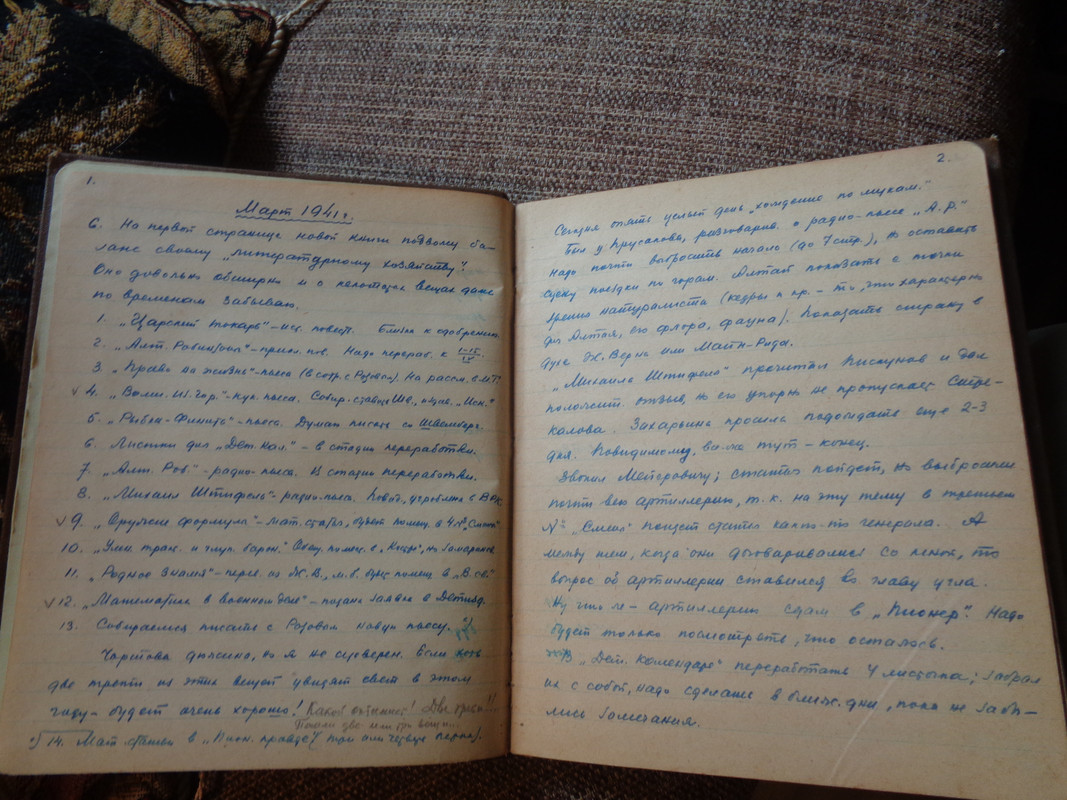 1.
Март 1941 г.
6. На первой странице новой книги подвожу ба-
ланс своему „литературному хозяйству".
Оно довольно обширно и о некоторых вещах даже
по временам забываю.
1. „Царский токарь" – ист. повесть. Близка к одобрению
2. „Алт. Робинзоны" – прикл. пов. Надо перераб. к
3. „Право на жизнь" – пьеса (в сотр. с Розовым). На рассм. в М.Т.
√ 4. „Волш. из. гор." – кук. пьеса. Собир. ставить
5. „Рыбка-Финита" – пьеса. Думаю писать со Шварцбергом.
6. Листки для „Дет. Кал." – в стадии переработки.
7. „Алт. Роб." – радио-пьеса. В стадии переработки.
8. „Михаил Штифель" – радио-пьеса.
√ 9. „Оружие формула" – мат. статья, будет помещ. в 4 № „Смена"
10. помещ. в „Костре",
11. „Родное Знамя" – перев. из Ж.В., м.б. будет помещ. в „В. св."
√ 12. „Математика в военном деле" – подана заявка в Детизд.
13. Собираемся писать с Розовым новую пьесу.
Чортова дюжина, но я не суеверен. Если хоть
две трети из этих вещей увидят свет в этом
году – будет очень хорошо! Какой оптимист! Две трети!!!
Пошли две или три вещи...
14. Мат. статьи в „Пион. правде"
2.
Сегодня опять целый день „хождение по мукам."
Был у Прусакова, разговарив. о радио-пьесе „А.Р."
Надо почти выбросить начало (до 7 стр.), но оставить
сцену поездки по горам. Алтай показать с точки
зрения натуралиста (кедры и пр. – т.е. что характерно
для Алтая, его флора, фауна). Показать страну в
духе Ж. Верна или Майн-Рида.
„Михаила Штифеля" прочитал Пискунов и дал
положит. отзыв, но его упорно не пропускает
Захарьина просила подождать еще 2-3
дня. Повидимому, тут – конец.
Звонил Мейеровичу; статья пойдет, но выбросили
почти всю артиллерию, т.к. на эту тему в третьем
№ „Смены" пойдет статья какого-то генерала. А
между тем, когда они договаривались со мной, то
вопрос об артиллерии ставился во главу угла.
Ну что ж – артиллерию сдам в „Пионер". Надо
будет только посмотреть, что осталось.
В „Дет. календаре" переработать 4 листка; забрал
их с собой, надо сделать в ближ. дни, пока не забы-
лись замечания.